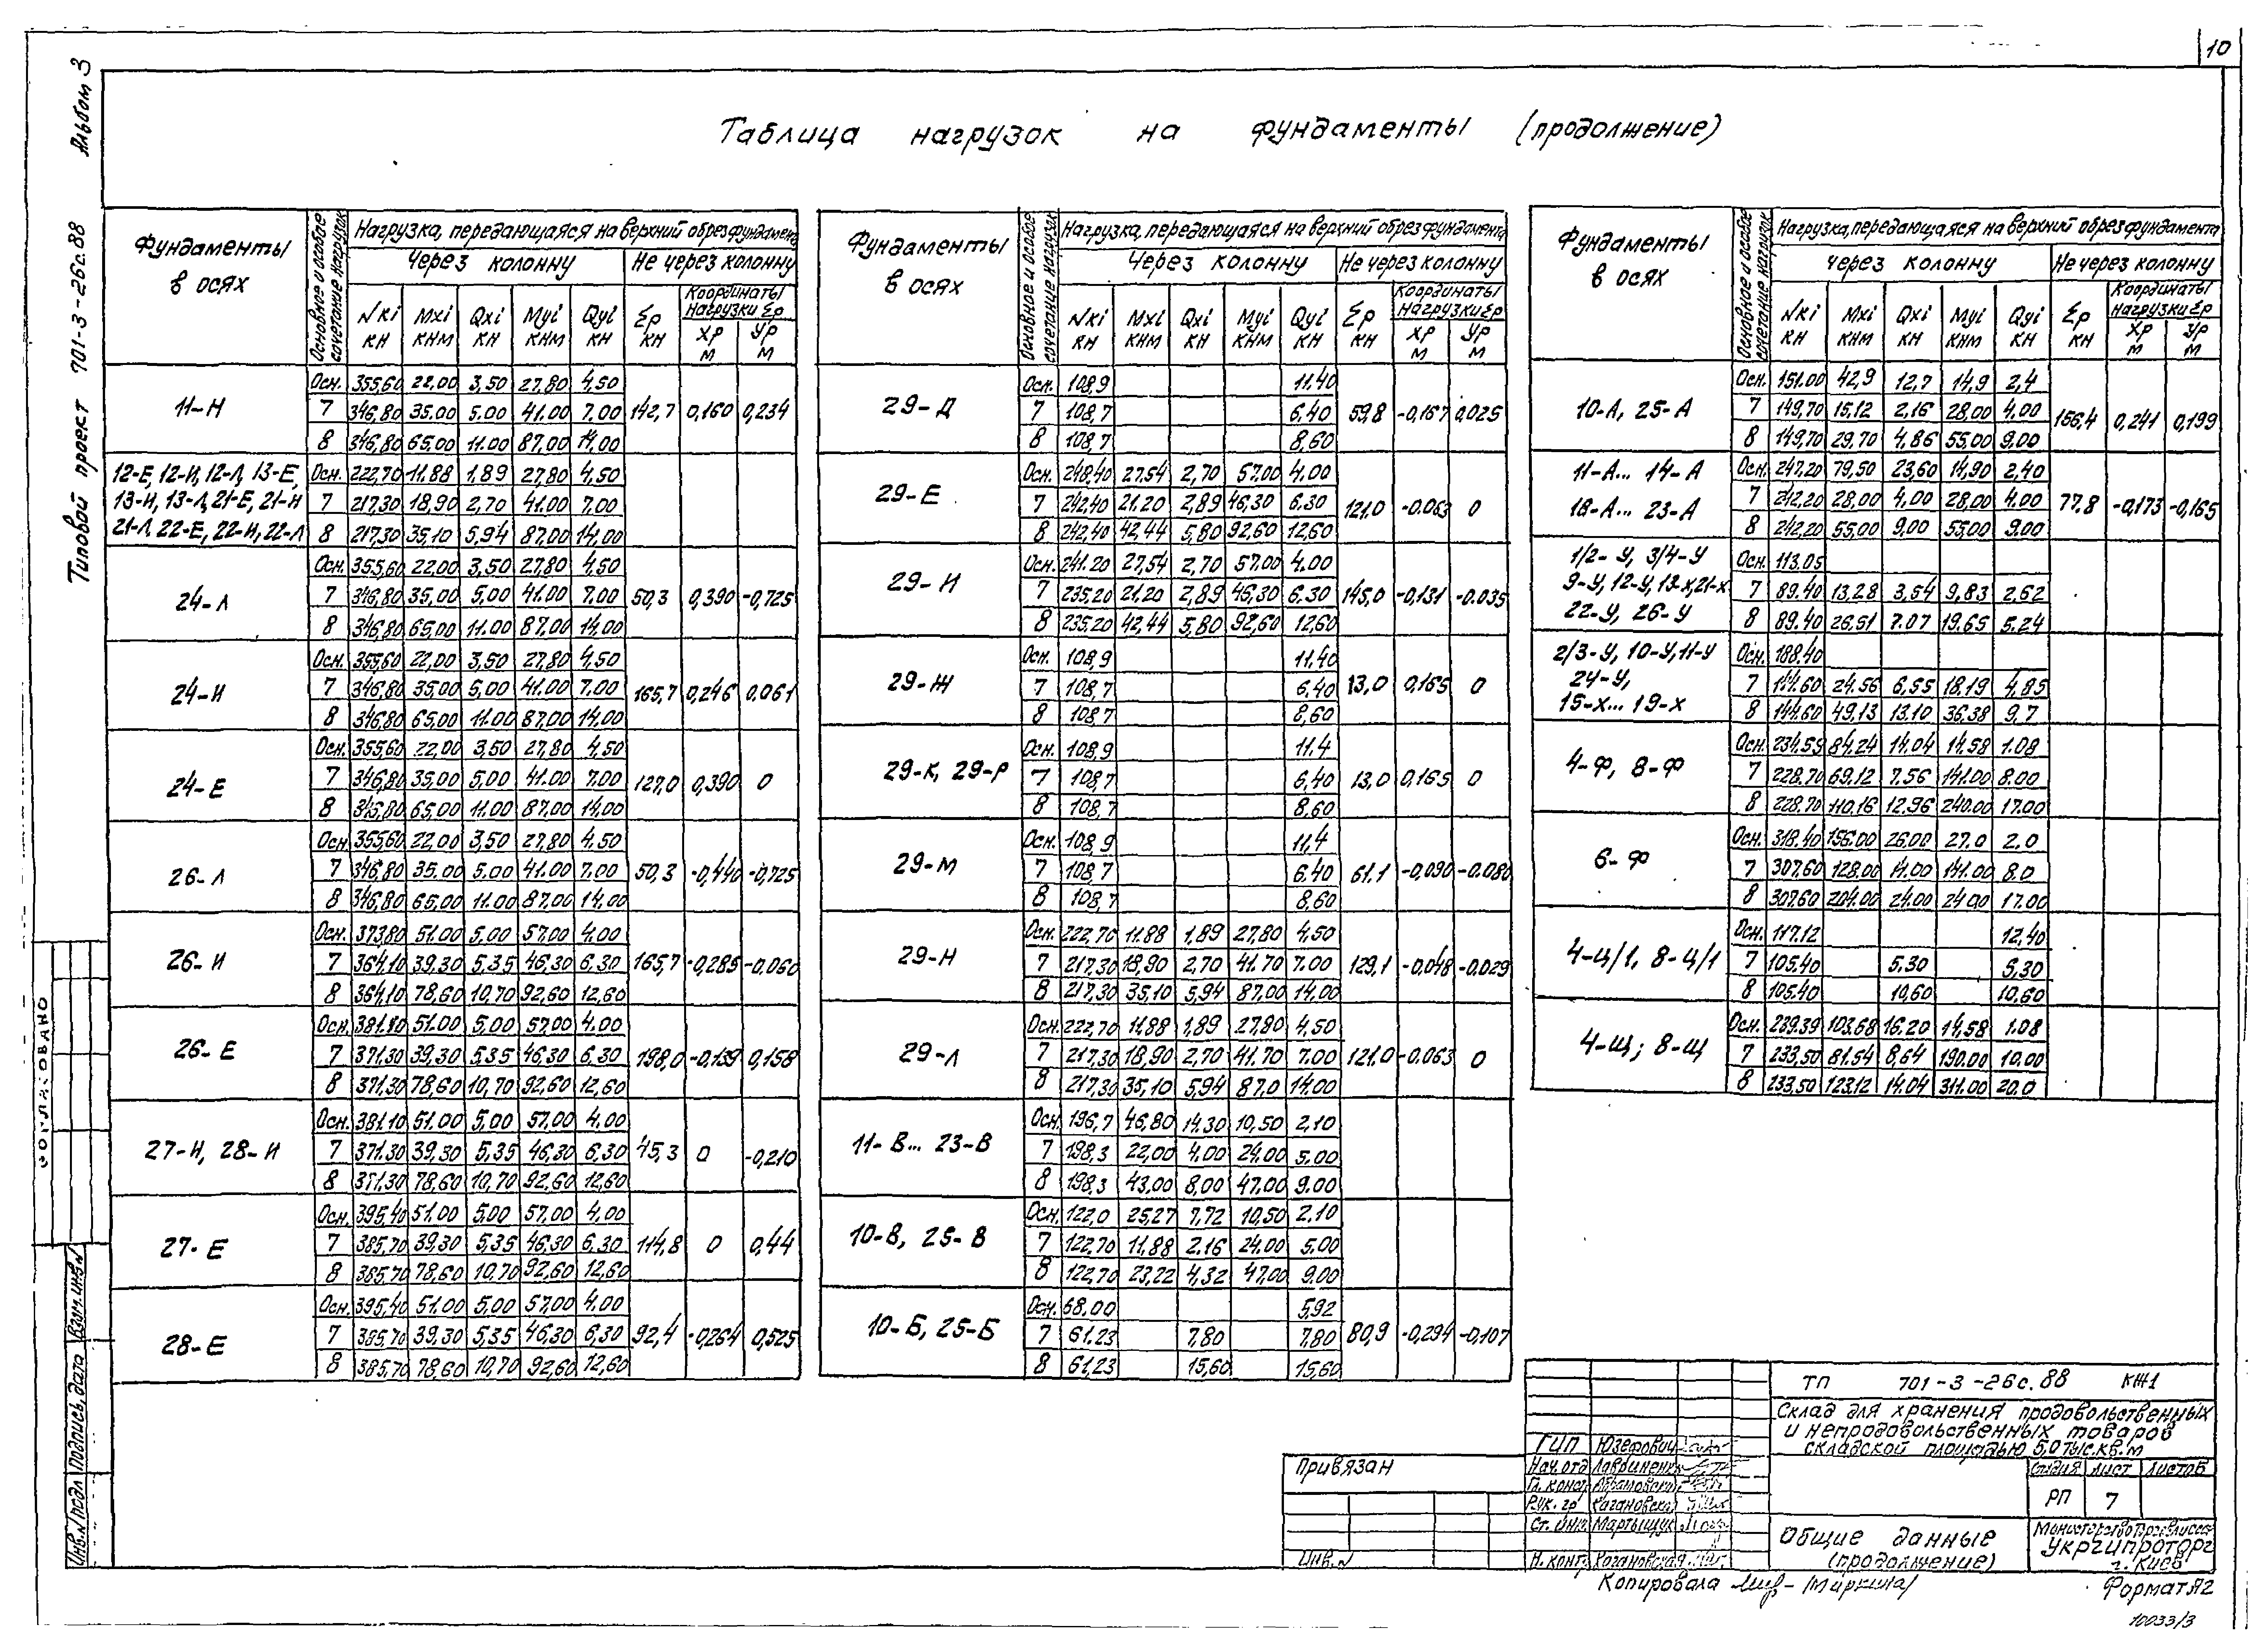 10
Альбом 3
Типовой проект 701-3-26с.88
Таблица нагрузок на фундаменты (продолжение)
Фундаменты в осях
Основное и особое сочетание нагрузок
Нагрузка, передающаяся на верхний обрез фундамента
Через колонну Не через колонну
Nкi кн Mxi кнм Qxi кн Myi кнм Qyi кн Σр кн Координаты нагрузки Σр Хр м Ур м
11-Н
Осн. 355,60 22,00 3,50 27,80 4,50
7 346,80 35.00 5.00 41.00 7,00 142,7 0,160 0,234
8 346,80 65.00 11.00 87,00 14,00
12-Е, 12-И, 12-Л, 13-Е,
13-И, 13-Л, 21-Е, 21-И
21-Л, 22-Е, 22-И, 22-Л
Осн. 222,70 11.88 1,89 27,80 4,50
7 217,30 18,90 2,70 41.00 7,00
8 217,30 35,10 5,94 87,00 14,00
24-Л
Осн. 355,60 22,00 3,50 27,80 4,50
7 346,80 35,00 5,00 41.00 7,00 50,3 0,390 -0,725
8 346,80 65,00 11.00 87,00 14,00
24-И
Осн. 355,60 22,00 3,50 27,80 4,50
7 346,80 35,00 5,00 41.00 7,00 165,7 0,246 0,061
8 346,80 65,00 11.00 87,00 14,00
24-Е
Осн. 355,60 22,00 3,50 27,80 4,50
7 346,80 35,00 5,00 41.00 7,00 127,0 0,390 0
8 346,80 65,00 11.00 87,00 14,00
26-Л
Осн. 355,60 22,00 3,50 27,80 4,50
7 346,80 35,00 5,00 41.00 7,00 50,3 -0,440 -0,725
8 346,80 65,00 11.00 87,00 14,00
26-И
Осн. 373,80 51.00 5,00 57,00 4,00
7 364,10 39,30 5,35 46,30 6,30 165,7 -0,285 -0,060
8 364,10 78,60 10,70 92,60 12,60
26-Е
Осн. 381.10 51.00 5,00 57,00 4,00
7 371,30 39,30 5,35 46,30 6,30 198,0 -0,139 0,158
8 371,30 78,60 10,70 92,60 12,60
27-И, 28-И
Осн. 381.10 51.00 5,00 57,00 4,00
7 371.30 39,30 5,35 46,30 6,30 45,3 0 -0,210
8 371,30 78,60 10,70 92,60 12,60
27-Е
Осн. 395,40 51.00 5,00 57,00 4,00
7 385,70 39,30 5,35 46,30 6,30 114,8 0 0,44
8 385,70 78,60 10,70 92,60 12,60
28-Е
Осн. 395,40 51.00 5,00 57,00 4,00
7 385,70 39,30 5,35 46,30 6,30 92,4 -0,264 0,525
8 385,70 78,60 10,70 92,60 12,60
Фундаменты в осях
Основное и особое сочетание нагрузок
Нагрузка, передающаяся на верхний обрез фундамента
Через колонну Не через колонну
Nкi кн Mxi кнм Qxi кн Myi кнм Qyi кн Σр кн Координаты нагрузки Σр Хр м Ур м
29-Д
Осн. 108,9 11.40
7 108,7 6.40 59,8 -0,167 0,025
8 108,7 8,60
29-Е
Осн. 248,40 27,54 2,70 57,00 4.00
7 242,40 21.20 2,89 46,30 6.30 121.0 -0.063 0
8 242,40 42,44 5,80 92,60 12,60
29-И
Осн. 241.20 27,54 2,70 57,00 4.00
7 235,20 21.20 2,89 46,30 6.30 145,0 -0,131 -0.035
8 235,20 42,44 5,80 92,60 12,60
29-Ж
Осн. 108,9 11.40
7 108,7 6,40 13,0 0,165 0
8 108,7 8,60
29-К, 29-Р
Осн. 108,9 11.4
7 108,7 6,40 13,0 0,165 0
8 108,7 8,60
29-М
Осн. 108,9 11,4
7 108,7 6.40 61.1 -0,090 -0.080
8 108,7 8,60
29-Н
Осн. 222,70 11.88 1,89 27,80 4,50
7 217,30 18,90 2,70 41.70 7,00 129,1 -0,048 -0,029
8 217,30 35,10 5,94 87,00 14,00
29-Л
Осн. 222,70 11.88 1,89 27,80 4,50
7 217,30 18,90 2,70 41.70 7,00 121.0 -0.063 0
8 217,30 35,10 5,94 87,0 14,00
11-В... 23-В
Осн. 196,7 46,80 14.30 10,50 2,10
7 198,3 22,00 4.00 24.00 5.00
8 198,3 43,00 8,00 47,00 9.00
10-В, 25-В
Осн. 122,0 25,27 7,72 10,50 2.10
7 122,70 11,88 2.16 24.00 5,00
8 122,70 23,22 4,32 47,00 9.00
10-Б, 25-Б
Осн. 68,00 5,92
7 61.23 7,80 7,80 80,9 -0,294 -0,107
8 61,23 15,60 15,60
Фундаменты в осях
Основное и особое сочетание нагрузок
Нагрузка, передающаяся на верхний обрез фундамента
Через колонну Не через колонну
Nкi кн Mxi кнм Qxi кн Myi кнм Qyi кн Σр кн Координаты нагрузки Σр Хр м Ур м
10-А, 25-А
Осн. 151.00 42,9 12,7 14,9 2,4
7 149,70 15,12 2,16 28,00 4,00 156,4 0,241 0,199
8 149,70 29,70 4,86 55,00 9.00
11-А... 14-А
18-А... 23-А
Осн. 247.20 79,50 23,60 14,90 2,40
7 242.20 28,00 4,00 28,00 4.00 77,8 -0,173 -0,165
8 242,20 55,00 9,00 55,00 9.00
1/2-У, 3/4-У
9-У, 12-У, 13-х, 21-х
22-У, 26-У
Осн. 113.05
7 89.40 13,28 3,54 9,83 2.62
8 89.40 26,51 7.07 19.65 5.24
2/3-У, 10-У, 11-У
24-У,
15-х... 19-х
Осн. 188.40
7 144.60 24.56 6,55 18,19 4,85
8 144.60 49,13 13.10 36.38 9,7
4-Ф, 8-Ф
Осн. 234.59 84,24 14.04 14.58 1.08
7 228,70 69,12 7.56 141.00 8.00
8 228.70 110,16 12,96 240.00 17.00
6-Ф
Осн. 318.40 156.00 26,00 27.0 2.0
7 307,60 128,00 14.00 141.00 8.0
8 307,60 204.00 24.00 24 00 17.00
4-Ц/1, 8-Ц/1
Осн. 117.12 12,40
7 105.40 5,30 5,30
8 105.40 10,60 10,60
4-Щ; 8-Щ
Осн. 239.39 103,68 16.20 14,58 1.08
7 233,50 81.54 8,64 190.00 10,00
8 233,50 123,12 14.04 311.00 20.0
СОГЛАСОВАНО
Взам.инв.№
Подпись, дата
Инв.№ подл
Привязан
Инв.№
ТП 701-3-26с.88 КЖ1
Склад для хранения продовольственных
и непродовольственных товаров
складской площадью 5,0 тыс.кв.м
ГИП Юзефович
Нач.отд
Гл. конст
Рук. гр Кагановская
Ст. инж Мартыщук
Н. конт. Кагановская
Стадия Лист Листов
РП 7
Общие данные
(продолжение)
Укргипроторг
г. Киев
Копировала Миркина
Формат А2
10033/3